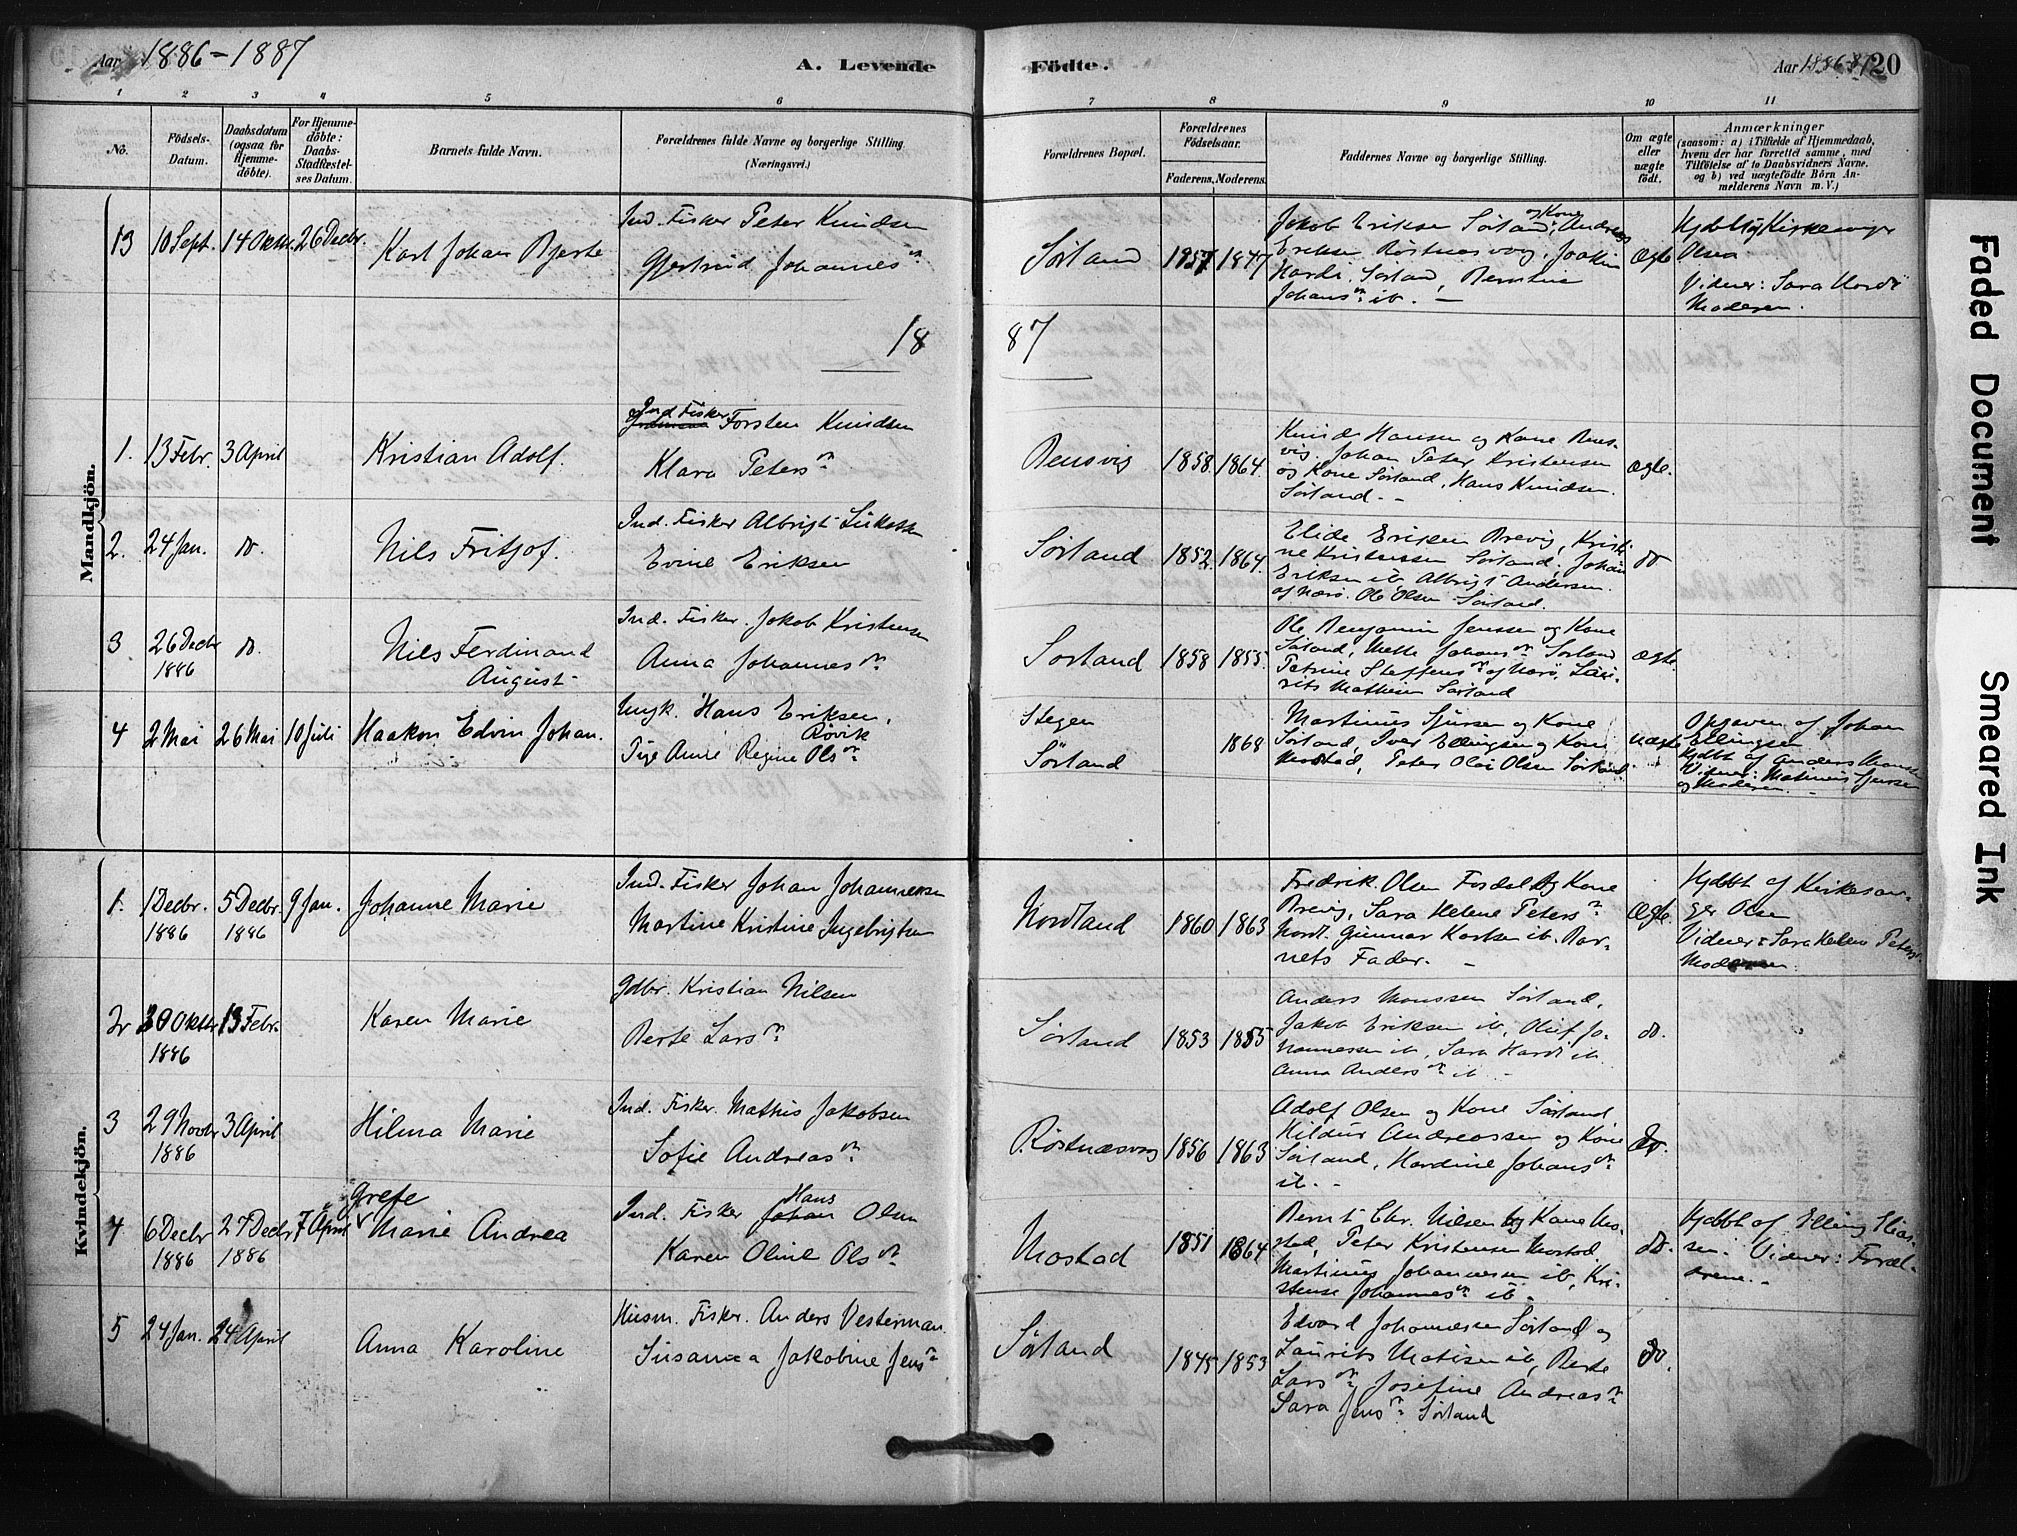 Aar 1886-1887
A. Levende Födte.
Aar 1886-87
20
1 2 3 4 5 6 7 8 9 10 11
No.
Födsels-
Datum.
Daabsdatum
(ogsaa for
Hjemme-
döbte).
For Hjemme-
döbte:
Daabs-
Stadfæstel-
ses Datum.
Barnets fulde Navn.
Forældrenes fulde Navne og borgerlige Stilling
(Næringsvei.)
Forældrenes Bopæl.
Forældrenes
Födselsaar.
Faderens. Moderens.
Faddernes Navne og borgerlige Stilling.
Om ægte
eller
uægte
födt.
Anmærkninger
(saasom: a) i Tilfælde af Hjemmedaab,
hvem der har forrettet samme, med
Tilföielse af to Daabsvidners Navne,
og b) ved uægtefödte Börn An-
melderens Navn m. V.)
Mandkjön.
13 10 Sept. 14 Oktbr. 26 Decbr.
Karl Johan Bjerke
Ind. Fisker Peter Knudsen
Gjertrud Johannesdr
Sørland 1857 1847
Jakob Eriksen Sørland og Kone, Andreas
Eriksen Røstnesvog, Joakim
Hardi, Sørland, Berntine
Johansdr ib. -
Ægte
Kirkesanger
Olsen
Vidner: Sara Hardi
Moderen.
1887
1. 13 Febr. 3 April
Kristian Adolf.
Ind Fisker Torsten Knudsen
Klara Petersdr
Rensvig 1858. 1864.
Knud Hansen og Kone Rens-
vig. Johan Peter Kristensen
og Kone Sørland, Hans Knudsen.
Sørland. -
Ægte.
2. 24 Jan. do.
Nils Fritjof.
Ind. Fisker Albrigt
Evine Eriksen
Sørland 1852. 1864.
Elide Eriksen Brevig, Kristi-
ne Kristensen Sørland, Johan
Eriksen ib Albrigt Andersen
af Værø. Ole Olsen Sørland.
do
3 26 Decbr 1886 do.
Nils Ferdinand
August
Ind. Fisker. Jakob Kristensen
Anna Johannesdr
Sørland 1858 1855.
Ole Benjamin Jenssen og Kone
Sørland, Mette Johansdr Sørland
Petrine Steffensdr af Værø, Lau-
rits Mathisen Sørland
Ægte.
4 2 Mai 26 Mai 10 Juli
Haakon Edvin Johan.
Ungk. Hans Eriksen,
Røvik
Pige Anne Regine Olsdr
Stegen
Sørland
1868
Martinus Sjursen og Kone
Sørland, Iver Ellingsen og Kone
Mostad, Peter Olai Olsen Sørland
Uægte
Opgiven af Johan
Ellingsen
Hjdbt af Anders Monsen
Vidner: Matinus Sjursen
og Moderen. -
Kvindekjön.
1. 1 Decbr. 1886 5 Decbr. 1886 9 Jan.
Johanne Marie
Ind. Fisker Johan Johannessen
Martine Kristine Ingebrigtsen
Nordland 1860 1863
Fredrik Olsen Fordal og Kone
Brevig, Sara Helene Petersdr
Nordl. Gunnar Karlsen ib. Bar-
nets Fader. -
Ægte.
Hjdbt af Kirkesan-
ger Olsen
Vidner: Sara Helene Petersdr
Moderen.
2 30 Oktbr 1886 13 Febr.
Karen Marie
Gdbr. Kristian Nilsen
Berte Larsdr
Sørland 1853 1855
Anders Monssen Sørland,
Jakob Eriksen ib, Oluf Jo-
hannessen ib, Sara Hardi ib
Anna Andersdr ib -
do.
3 29 Novbr 1886 3 April
Hilma Marie
Ind. Fisker. Mathis Jakobsen
Sofie Andreasdr
Røstnæsvog 1856 1863
Adolf Olsen og Kone Sørland
Hildur Andreassen og Kone
Sørland, Hardine Johansdr
ib. -
do.
4 6 Decbr 1886 27 Decbr 1886 7 April
Grefe
Marie Andrea
Ind. Fisker Hans Olsen
Karen Oline Olsdr
Mostad 1851 1864
Bernt Chr. Nilsen og Kone Mo-
stad, Peter Kristensen Mostad,
Martinus Johannessen ib, Kri-
stense Johannesdr ib. -
do.
Hjdbt af Elling Elias-
sen. Vidner: Foræl-
drene. -
5 24 Jan. 24 April
Anna Karoline
Husm. Fisker. Anders Vesterman
Susanna Jakobine Jensdr
Sørland 1845 1853
Edvard Johannesen Sørland, og
Laurits Matisen ib, Berte
Larsdr Josefine Andreasdr
Sara Jensdr Sørland
do.
Faded Document
Smeared Ink